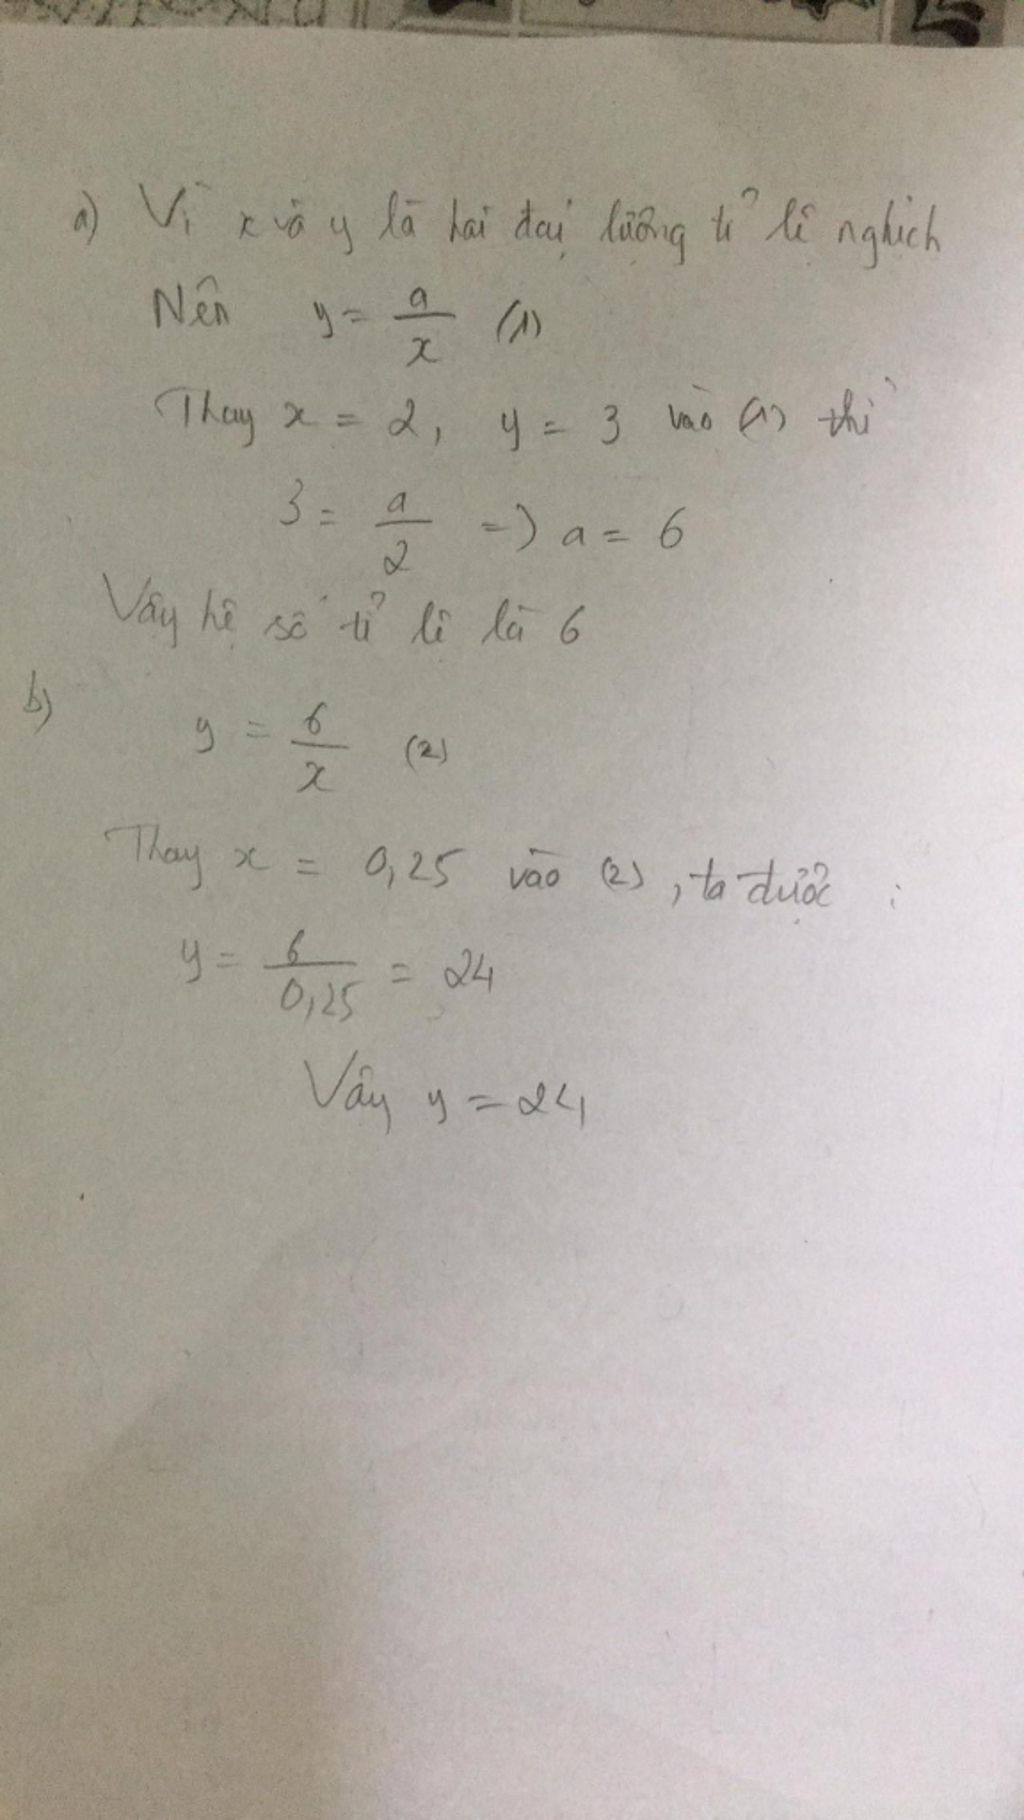 a) Vì x và y là hai đại lượng tỉ lệ nghịch
Nên y = a/x (1)
Thay x = 2, y = 3 vào (1) thì
3 = a/2 => a = 6
Vậy hệ số tỉ lệ là 6
b) y = 6/x (2)
Thay x = 0,25 vào (2), ta được :
y = 6/0,25 = 24
Vậy y = 24